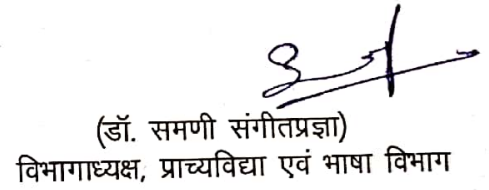 (डॉ. समणी संगीतप्रज्ञा)
विभागाध्यक्ष, प्राच्यविद्या एवं भाषा विभाग